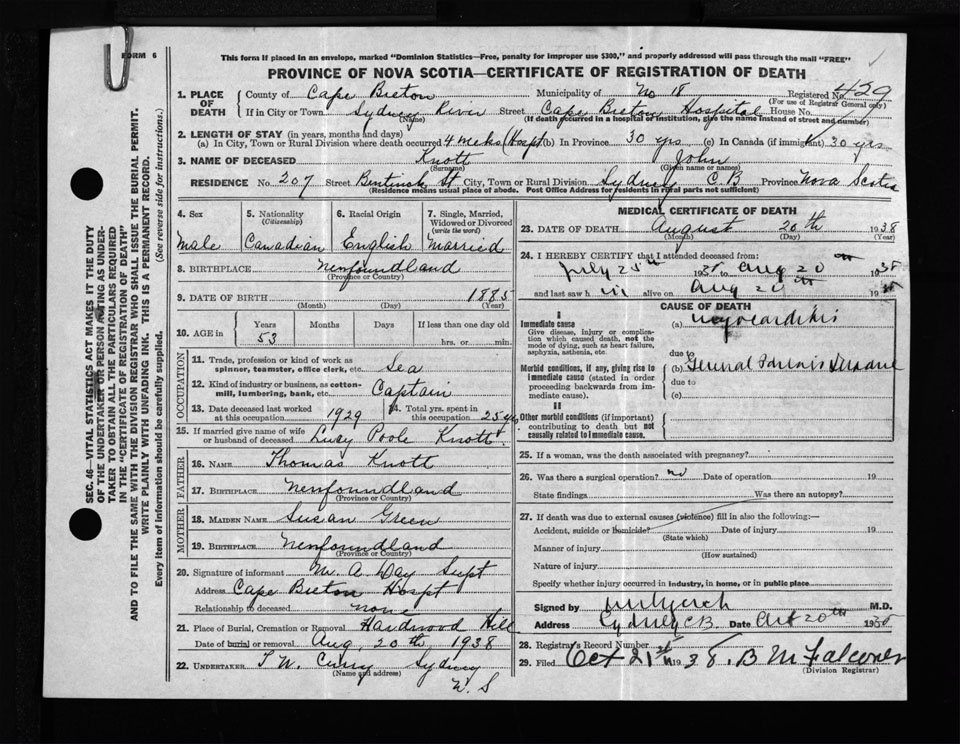 FORM 6
This form if placed in an envelope, marked "Dominion Statistics—Free, penalty for improper use $300," and properly addressed will pass through the mail "FREE"
PROVINCE OF NOVA SCOTIA—CERTIFICATE OF REGISTRATION OF DEATH
1. PLACE OF DEATH County of Cape Breton Municipality of No 18 Registered No. 429
(For use of Registrar General only)
If in City or Town Sydney River Street Cape Breton Hospital House No.
(Name) (If death occurred in a hospital or institution, give the name instead of street and number)
2. LENGTH OF STAY (in years, months and days)
(a) In City, Town or Rural Division where death occurred 4 weeks (Hospt) (b) In Province 30 yrs (c) In Canada (if immigrant) 30 yrs
3. NAME OF DECEASED Knott John
(Surname) (Given name or names)
RESIDENCE No. 207 Street Bentinck St City, Town or Rural Division Sydney C.B Province Nova Scotia
(Residence means usual place of abode. Post Office Address for residents in rural parts not sufficient)
4. Sex
Male
5. Nationality
(Citizenship)
Canadian
6. Racial Origin
English
7. Single, Married, Widowed or Divorced
(write the word)
Married
8. BIRTHPLACE Newfoundland
(Province or Country)
9. DATE OF BIRTH 1885
(Month) (Day) (Year)
10. AGE in Years Months Days If less than one day old
53 hrs. or min.
OCCUPATION
11. Trade, profession or kind of work as spinner, teamster, office clerk, etc. Sea
12. Kind of industry or business, as cotton-mill, lumbering, bank, etc. Captain
13. Date deceased last worked at this occupation 1929
14. Total yrs. spent in this occupation 25 yrs
15. If married give name of wife or husband of deceased Lucy Poole Knott
FATHER
16. NAME Thomas Knott
17. BIRTHPLACE Newfoundland
(Province or Country)
MOTHER
18. MAIDEN NAME Susan Green
19. BIRTHPLACE Newfoundland
(Province or Country)
20. Signature of informant M. A Day Supt
Address Cape Breton Hospt
Relationship to deceased none
21. Place of Burial, Cremation or Removal Hardwood Hill
Date of burial or removal Aug. 20th 1938
22. UNDERTAKER T. W. Curry Sydney
(Name and address)
N. S
MEDICAL CERTIFICATE OF DEATH
23. DATE OF DEATH August 20th 1938
(Month) (Day) (Year)
24. I HEREBY CERTIFY that I attended deceased from:
July 25th 1938 to Aug 20th 1938
and last saw him alive on Aug 20th 19
CAUSE OF DEATH
I
Immediate cause
Give disease, injury or complication which caused death, not the mode of dying, such as heart failure, asphyxia, asthenia, etc.
(a) Myocarditis
due to
Morbid conditions, if any, giving rise to immediate cause (stated in order proceeding backwards from immediate cause).
(b) General Paresis Insane
due to
(c)
II
Other morbid conditions (if important) contributing to death but not causally related to immediate cause.
25. If a woman, was the death associated with pregnancy?
26. Was there a surgical operation? no Date of operation 19
State findings Was there an autopsy?
27. If death was due to external causes (violence) fill in also the following:—
Accident, suicide or homicide? Date of injury 19
(State which)
Manner of injury
(How sustained)
Nature of injury
Specify whether injury occurred in industry, in home, or in public place
Signed by M.D.
Address Sydney C.B. Date 20th 1938
28. Registrar's Record Number
29. Filed Oct 21st 1938. B M Falconer
(Division Registrar)
SEC. 46—VITAL STATISTICS ACT MAKES IT THE DUTY
OF THE UNDERTAKER OR PERSON ACTING AS UNDER-
TAKER TO OBTAIN ALL THE PARTICULARS REQUIRED
IN THE "CERTIFICATE OF REGISTRATION OF DEATH"
AND TO FILE THE SAME WITH THE DIVISION REGISTRAR WHO SHALL ISSUE THE BURIAL PERMIT.
WRITE PLAINLY WITH UNFADING INK. THIS IS A PERMANENT RECORD.
Every item of information should be carefully supplied. (See reverse side for instructions.)